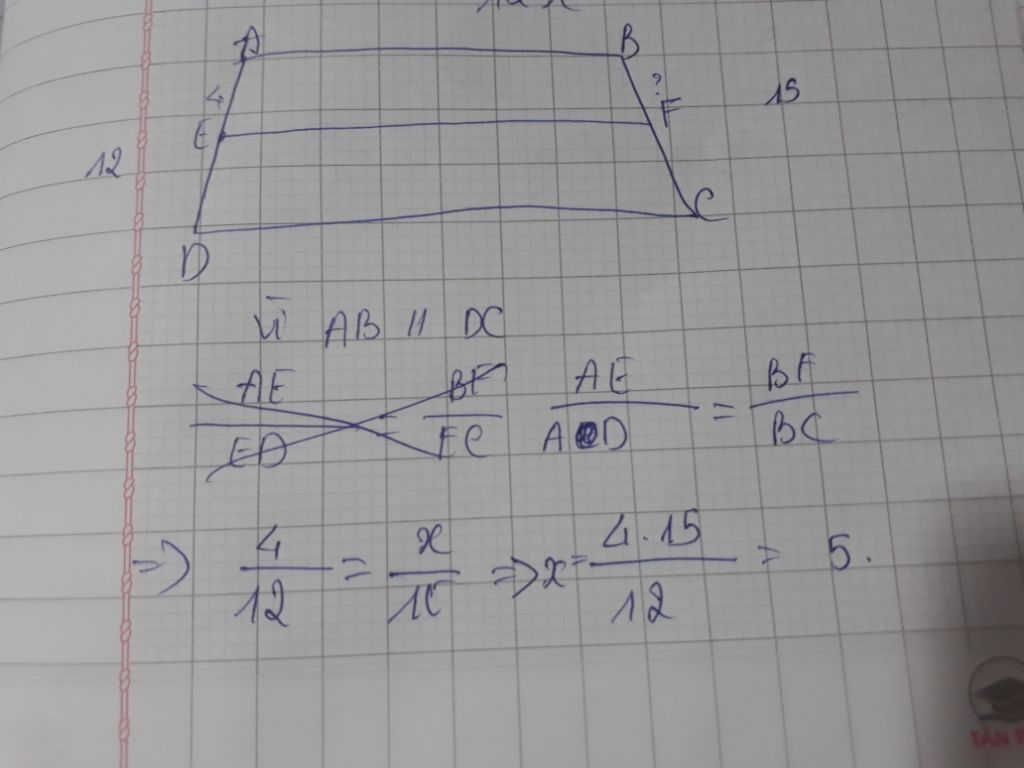 A B
4 ? F 15
E
12
C
D
Vì AB // DC
AE/ED BF/FC AE/AD = BF/BC
=> 4/12 = x/15 => x = 4.15/12 = 5.